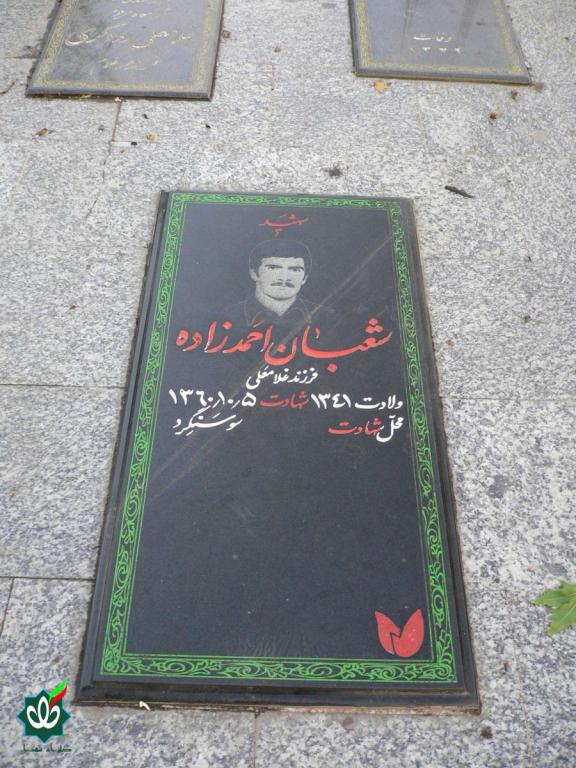 وفات
شهید
شعبان احمدزاده
فرزند غلامعلی
ولادت ۱۳۴۱ شهادت ۱۳۶۰٫۱۰٫۵
محل شهادت سوسنگرد